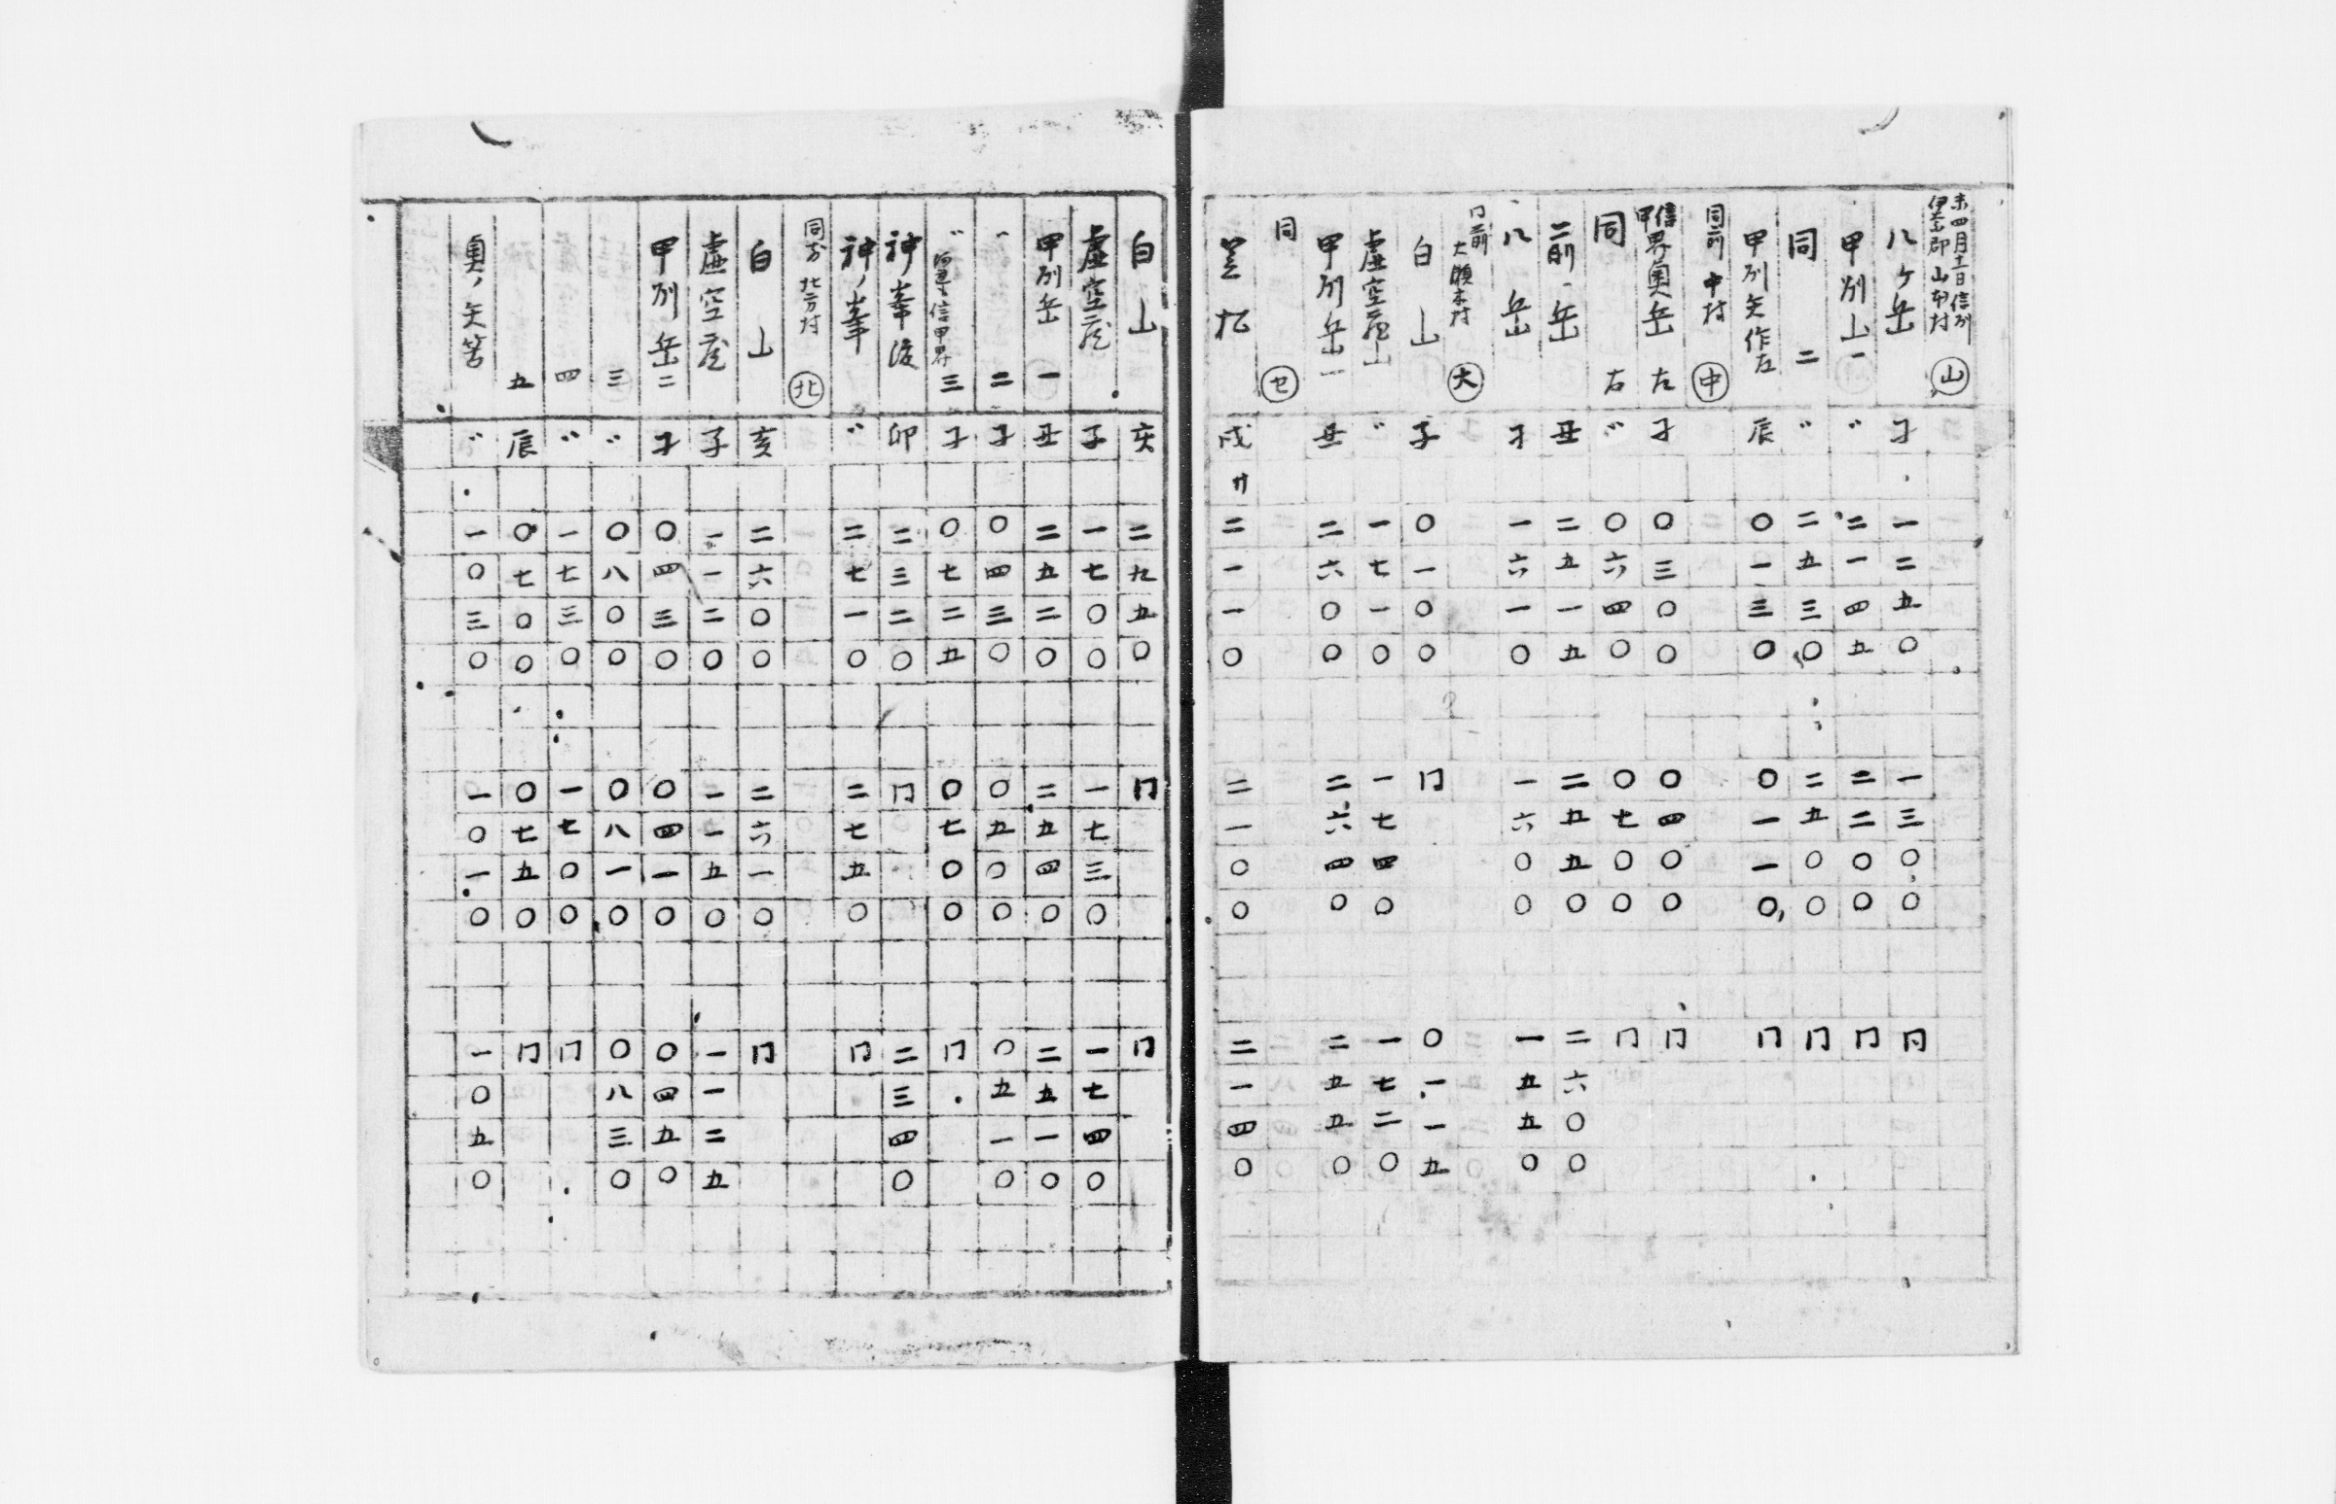 未四月十一日信刕
伊奈郡山本村 ㊤山
八ヶ岳 子 一二五〇 一三〇〇 同
甲刕山一 〃 二一四五 二二〇〇 同
同 二 〃 二五三〇 二五〇〇 同
甲刕矢作左 辰 〇一三〇 〇一一〇 同
同前 中村 ㊥
信甲界奥岳 左 子 〇三〇〇 〇四〇〇 同
同 右 〃 〇六四〇 〇七〇〇 同
前岳 丑 二五一五 二五五〇 二六〇〇
八岳 子 一六一〇 一六〇〇 一五五〇
同前 大願寺村 大
白山 子 〇一〇〇 同 〇一一五
虚空蔵山 〃 一七一〇 一七四〇 一七二〇
甲刕岳一 丑 二六〇〇 二六四〇 二五五〇
同 セ
戌 二一一〇 二一〇〇 二一四〇
白山 亥 二九五〇 同 同
虚空蔵 子 一七〇〇 一七三〇 一七四〇
甲刕岳 一 丑 二五二〇 二五四〇 二五一〇
〃 二 子 〇四三〇 〇五〇〇 〇五一〇
〃 信甲界 三 子 〇七二五 〇七〇〇 同
神峯後 卯 二三二〇 同 二三四〇
神ノ峯 〃 二七一〇 二七五〇 同
同前 北方村 北
白山 亥 二六〇〇 二六一〇 同
虚空蔵 子 一一二〇 一一五〇 一一二五
甲刕岳 二 子 〇四三〇 〇四一〇 〇四五〇
三 〃 〇八〇〇 〇八一〇 〇八三〇
四 〃 一七三〇 一七〇〇 同
五 辰 〇七〇〇 〇七五〇 同
奥ノ矢筈 〃 一〇三〇 一〇一〇 一〇五〇